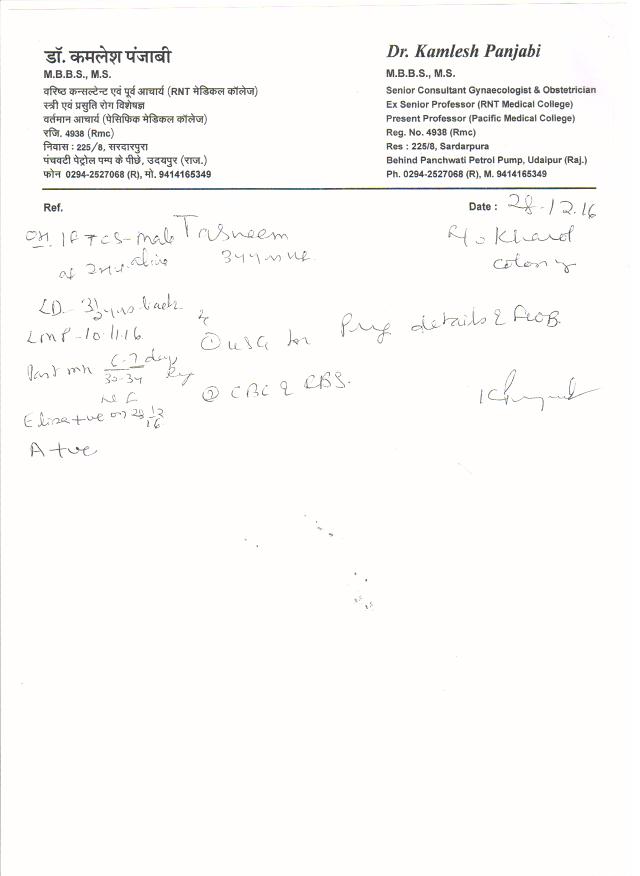 डॉ. कमलेश पंजाबी
M.B.B.S., M.S.
वरिष्ठ कन्सल्टेन्ट एवं पूर्व आचार्य (RNT मेडिकल कॉलेज)
स्त्री एवं प्रसुति रोग विशेषज्ञ
वर्तमान आचार्य (पेसिफिक मेडिकल कॉलेज)
रजि. 4938 (Rmc)
निवास : 225/8, सरदारपुरा
पंचवटी पेट्रोल पम्प के पीछे, उदयपुर (राज.)
फोन 0294-2527068 (R), मो. 9414165349
Dr. Kamlesh Panjabi
M.B.B.S., M.S.
Senior Consultant Gynaecologist & Obstetrician
Ex Senior Professor (RNT Medical College)
Present Professor (Pacific Medical College)
Reg. No. 4938 (Rmc)
Res : 225/8, Sardarpura
Behind Panchwati Petrol Pump, Udaipur (Raj.)
Ph. 0294-2527068 (R), M. 9414165349
Ref.
Date : 28.12.16
Tasneem
colony
LD - yrs back
LMP - 10.11.16
Past mh 6-7 days
30-34
① USG for Preg details &
② CBC & RBS.
on 28.12.16
A +ve